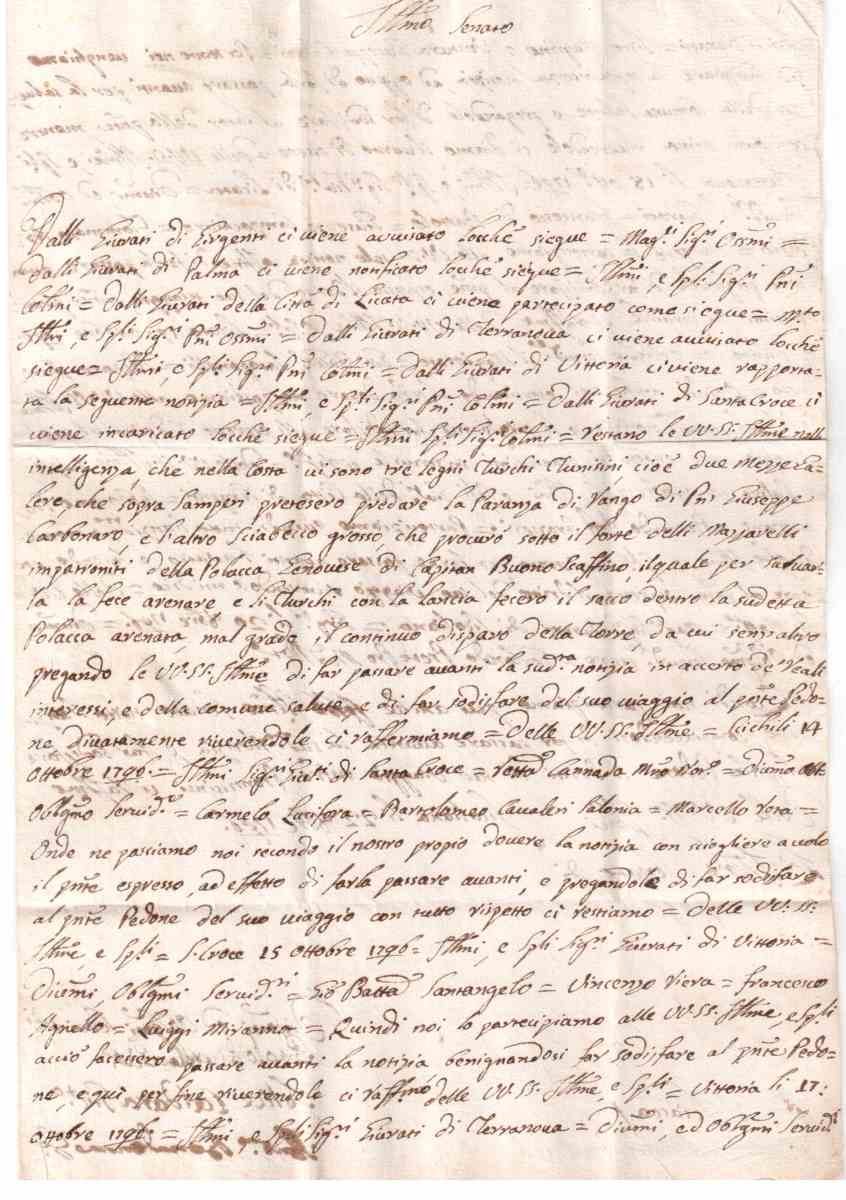 Ill.mo Senato
Dalli Giurati di Girgenti ci viene avvisato locchè siegue = Mag.ci Sig.ri Oss.mi =
dalli Giurati di Palma ci viene notificato locchè siegue = Ill.mi, e Sp.li Sig.ri Pñi
Col.mi = dalli Giurati della Città di Licata ci viene partecipato come siegue = M.to
Ill.ri, e Sp.li Sig.ri Pñi Oss.mi = dalli Giurati di Terranova ci viene avvisato locchè
siegue = Ill.mi, e Sp.li Sig.ri Pñi Col.mi = dalli Giurati di Vittoria ci viene rapporta-
ta la seguente notizia = Ill.mi, e Sp.li Sig.ri Pñi Col.mi = dalli Giurati di Santa Croce ci
viene incaricato locchè siegue = Ill.mi Sp.li Sig.ri Col.mi = restano le VV. SS. Ill.me nell
intelligenza, che nella Costa vi sono tre legni Turchi Tunisini, cioè due Mezze Ga-
lere, che sopra Samperi pretesero predare la Paranza di rango di Pñi Giuseppe
Carbonaro, e l'altro Sciabecco grosso, che procurò sotto il forte delli Mazzarelli
impatronirsi della Polacca Genovese di Capitan Buono Scaffino, il quale per salvar-
la la fece arenare, e li Turchi con la lancia fecero il sacco dentro la sudetta
Polacca arenata, mal grado il continuo disparo della Torre, da cui senz'altro
pregando le VV. SS. Ill.me di far passare avanti la sud.ta notizia in accerto de' Reali
interessi, e della comune salute, e di far sodisfare del suo viaggio al pñte Pedo-
ne divatamente riverendole ci raffermiamo = Delle VV. SS. Ill.me = Cichili 14
Ottobre 1796 = Ill.mi Sig.ri Giur.ti di Santa Croce = Cannada = 
Oblg.mo Servid.re = Carmelo Lucifora = Bartolomeo Cavaleri Salonia = Marcello =
Onde ne passiamo noi secondo il nostro propio dovere la notizia con sciogliere a volo
il pñte espresso, ad effetto di farla passare avanti, e pregandole di far sodisfare
al pñte Pedone del suo viaggio con tutto rispetto ci restiamo = Delle VV. SS.
Ill.me, e Sp.li = S. Croce 15 Ottobre 1796 = Ill.mi, e Sp.li Sig.ri Giurati di Vittoria =
Div.mi, Oblg.mi Servid.ri = Gio Batta Santangelo = Vincenzo Viera = Francesco
Agnello = Luiggi Miranno = Quindi noi lo partecipiamo alle VV. SS. Ill.me, e Sp.li
acciò facessero passare avanti la notizia benignandosi far sodisfare al pñte Pedo-
ne, e qui per fine riverendole ci raff.mo delle VV. SS. Ill.me, e Sp.li = Vittoria li 17:
Ottobre 1796 = Ill.mi, e Sp.li Sig.ri Giurati di Terranova = Div.mi, ed Oblg.mi Servid.ri